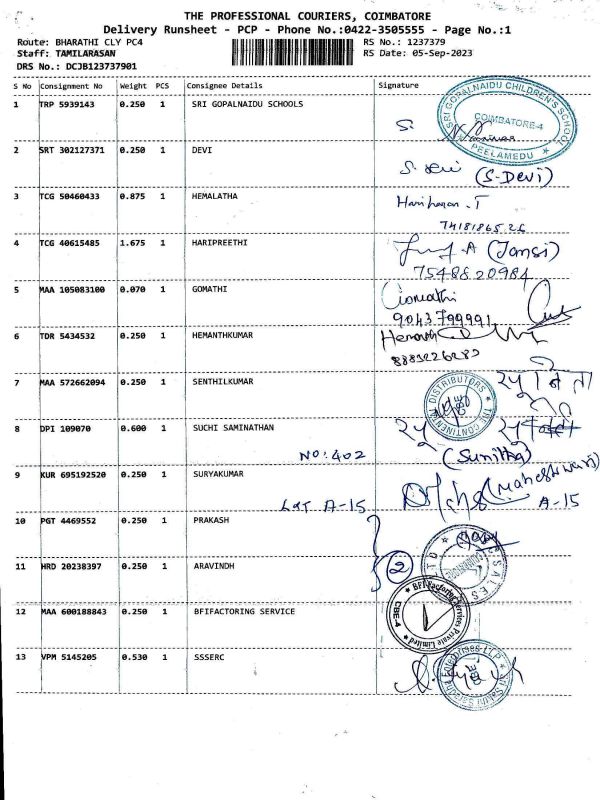 THE PROFESSIONAL COURIERS, COIMBATORE
Delivery Runsheet - PCP - Phone No.:0422-3505555 - Page No.:1
Route: BHARATHI CLY PC4 RS No.: 1237379
Staff: TAMILARASAN RS Date: 05-Sep-2023
DRS No.: DCJB123737901
S No Consignment No Weight PCS Consignee Details Signature
1 TRP 5939143 0.250 1 SRI GOPALNAIDU SCHOOLS
SRI GOPALNAIDU CHILDREN'S SCHOOL
COIMBATORE-4
PEELAMEDU
2 SRT 302127371 0.250 1 DEVI
(S-Devi)
3 TCG 50460433 0.875 1 HEMALATHA
Hariharan.T
7418186526
4 TCG 40615485 1.675 1 HARIPREETHI
A (Jansi)
7548820984
5 MAA 105083100 0.070 1 GOMATHI
Gomathi
9043799991
6 TDR 5434532 0.250 1 HEMANTHKUMAR
7 MAA 572662094 0.250 1 SENTHILKUMAR
THE CONTINENTAL DISTRIBUTORS
8 DPI 109070 0.600 1 SUCHI SAMINATHAN
NO: 402
(Sunitha)
9 KUR 695192520 0.250 1 SURYAKUMAR
(Maheshwari)
A-15
A-15
10 PGT 4469552 0.250 1 PRAKASH
11 HRD 20238397 0.250 1 ARAVINDH
2
SALES
LTD
12 MAA 600188843 0.250 1 BFIFACTORING SERVICE
BFI Factoring Services Private Limited
CBE-4
13 VPM 5145205 0.530 1 SSSERC
Enterprises LLP